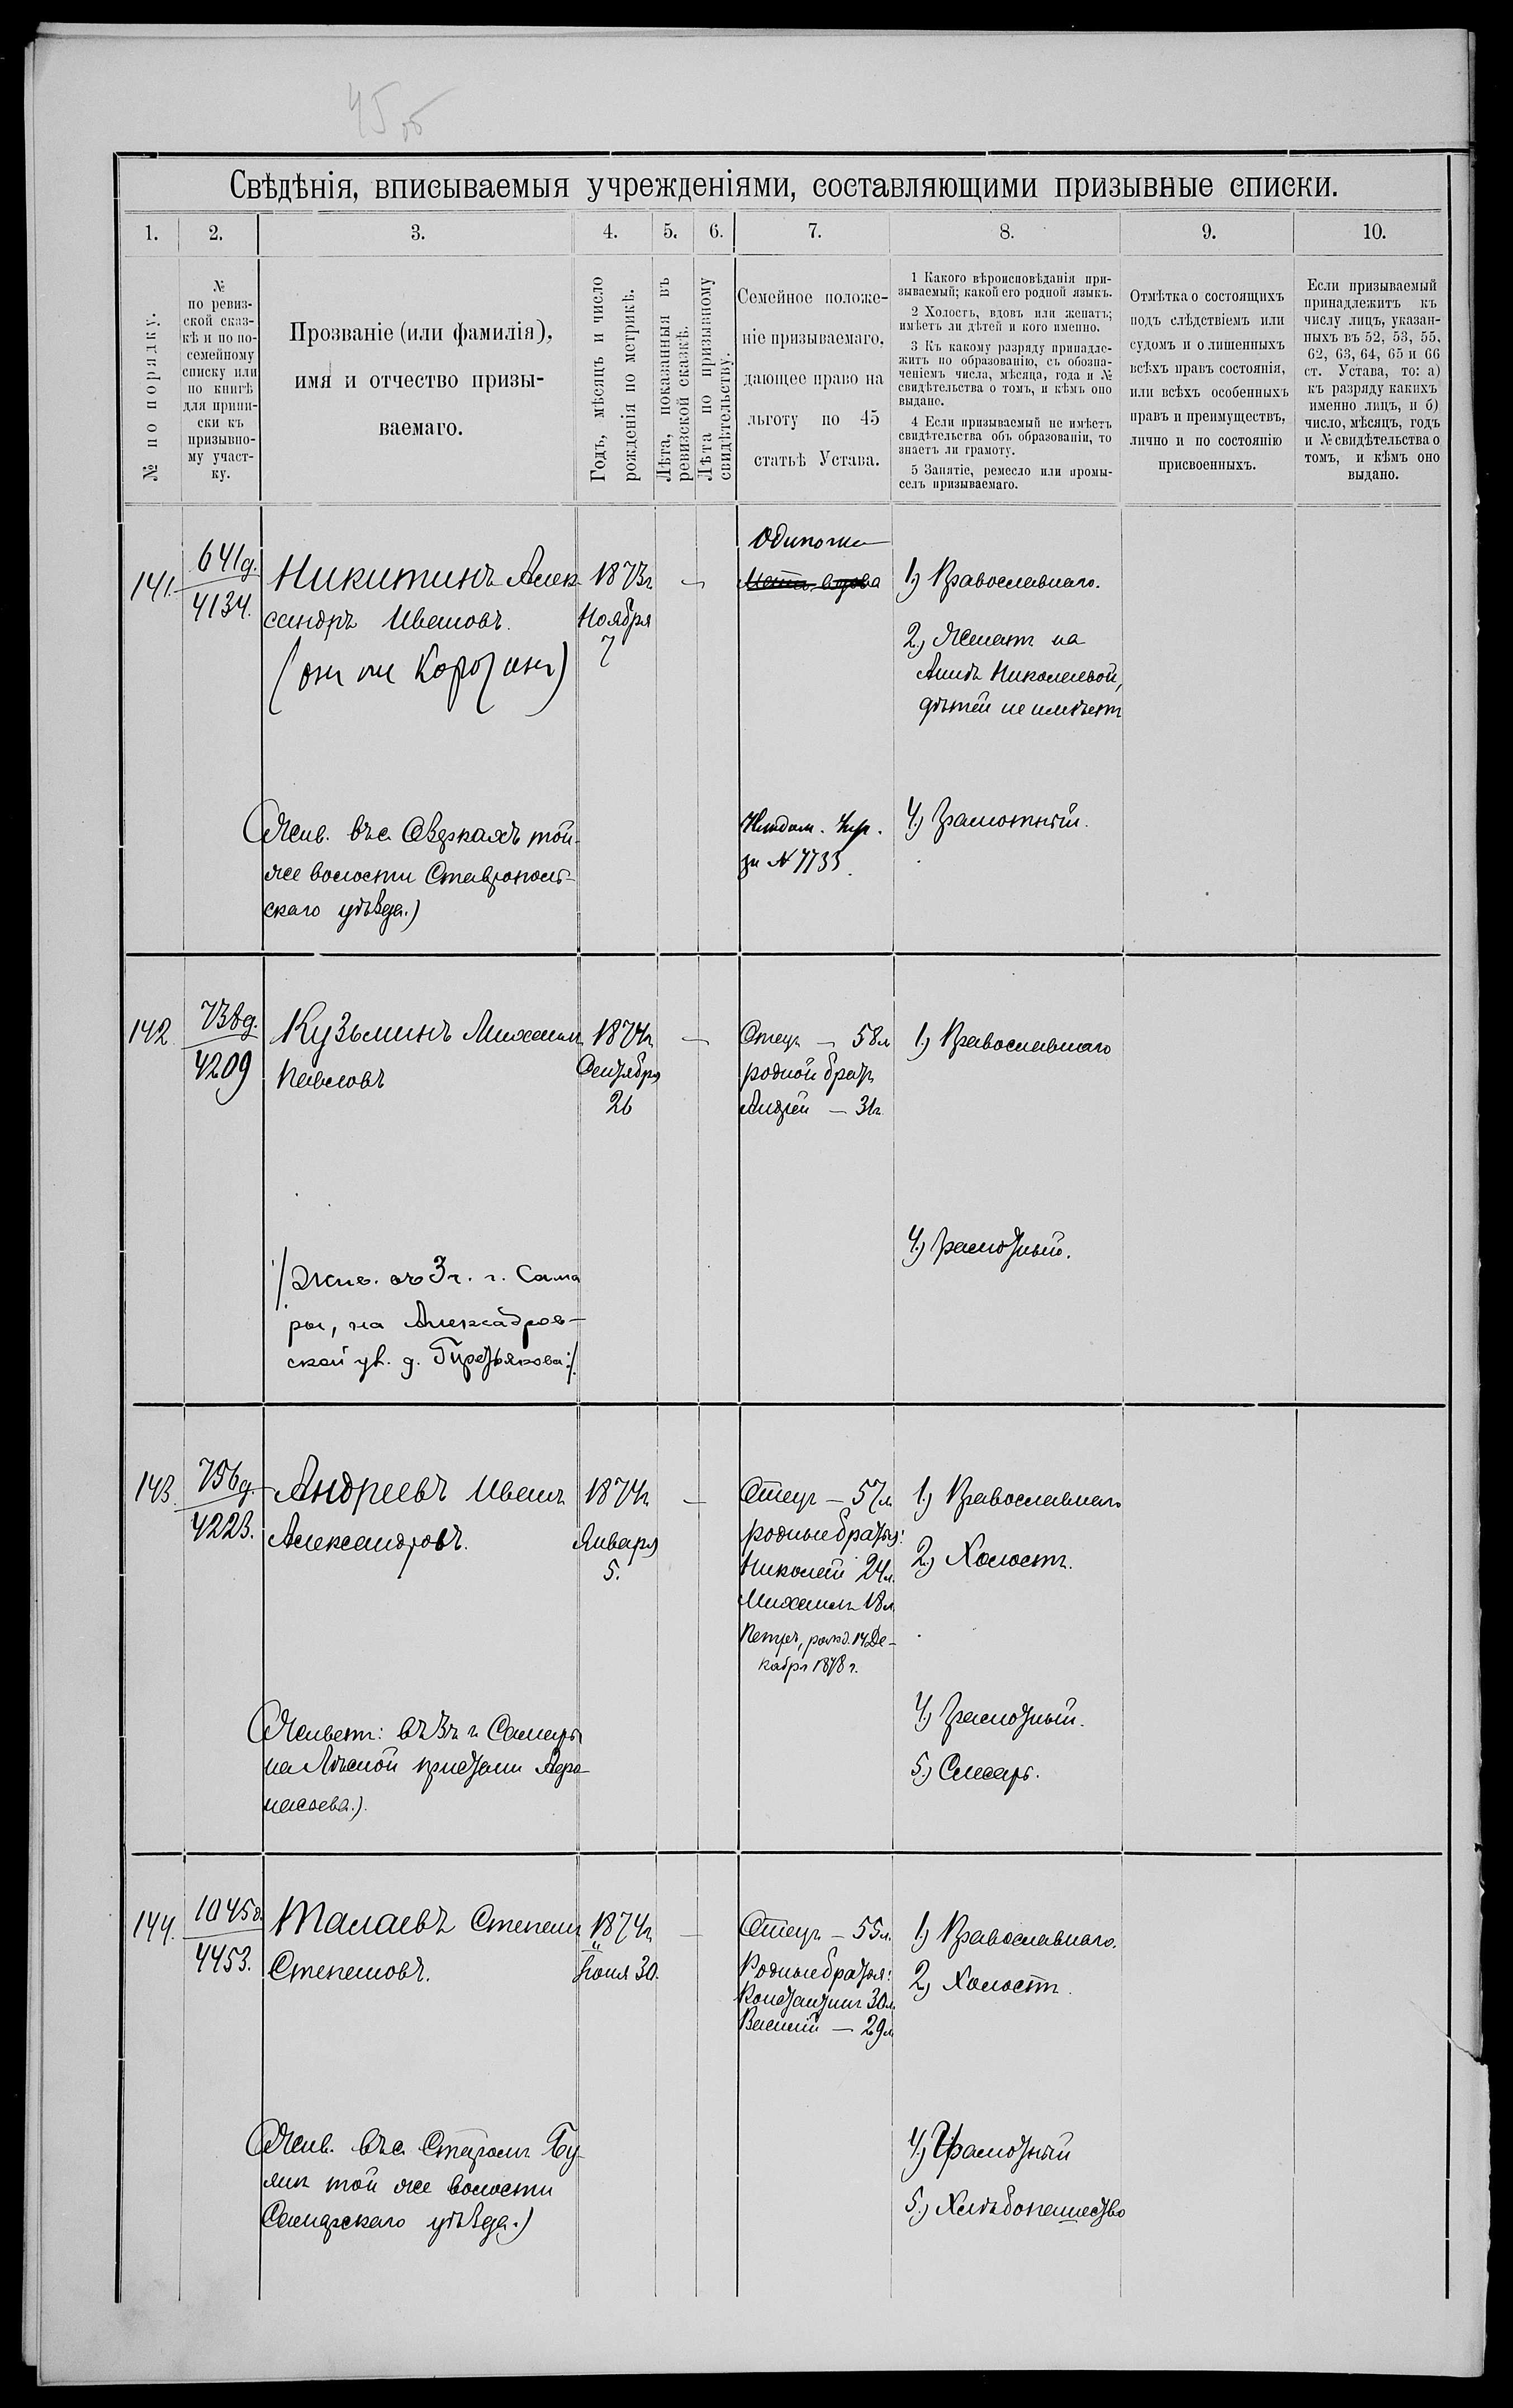 45 об
Свѣдѣнія, вписываемыя учрежденіями, составляющими призывные списки.
1. 2. 3. 4. 5. 6. 7. 8. 9. 10.
№ по порядку.
№
по ревиз-
ской сказ-
кѣ и по по-
семейному
списку или
по книгѣ
для припи-
ски къ
призывно-
му участ-
ку.
Прозваніе (или фамилія),
имя и отчество призы-
ваемаго.
Годъ, мѣсяцъ и число
рожденія по метрикѣ.
Лѣта, показанныя въ
ревизской сказкѣ.
Лѣта по призывному
свидѣтельству.
Семейное положе-
ніе призываемаго,
дающее право на
льготу по 45
статьѣ Устава.
1 Какого вѣроисповѣданія при-
зываемый; какой его родной языкъ.
2 Холостъ, вдовъ или женатъ;
имѣетъ ли дѣтей и кого именно.
3 Къ какому разряду принадле-
житъ по образованію, съ обозна-
ченіемъ числа, мѣсяца, года и №
свидѣтельства о томъ, и кѣмъ оно
выдано.
4 Если призываемый не имѣетъ
свидѣтельства объ образованіи, то
знаетъ ли грамоту.
5 Занятіе, ремесло или промы-
селъ призываемаго.
Отмѣтка о состоящихъ
подъ слѣдствіемъ или
судомъ и о лишенныхъ
всѣхъ правъ состоянія,
или всѣхъ особенныхъ
правъ и преимуществъ,
лично и по состоянію
присвоенныхъ.
Если призываемый
принадлежитъ къ
числу лицъ, указан-
ныхъ въ 52, 53, 55,
62, 63, 64, 65 и 66
ст. Устава, то: а)
къ разряду какихъ
именно лицъ, и б)
число, мѣсяцъ, годъ
и № свидѣтельства о
томъ, и кѣмъ оно
выдано.
141.
641д.
4134.
Никитинъ Алек
сандръ Ивановъ.
(он же Корогин)
1873г
Ноября
7
—
Одиночка
Мать вдова
1.) Православнаго.
2.) Женатъ на
Аннѣ Николаевой,
дѣтей не имѣетъ
(Жив. въ с. той-
же волости Ставрополь-
скаго уѣзда.)
за № 7733.
4.) Грамотный.
142
738д.
4209
Кузьминъ Михаилъ
Павловъ
1874г
Сентября
26
—
Отецъ — 58л
родной братъ
Андрей — 31г
1.) Православнаго
4.) Грамотный.
/жив. въ 3 ч. г. Сама
ры, на Александров-
ской ул. д. Третьякова:/.
143.
756д.
4223.
Андреевъ Иванъ
Александровъ.
1874г
Января
5.
—
Отецъ — 57л
родные братья:
Николай 24л.
Михаилъ 18л
Петръ, рожд. 14 Де-
кабря 1878 г.
1.) Православнаго
2.) Холостъ.
4.) Грамотный.
5.) Слесарь.
(Живетъ: въ 3ч г Самары
на Лѣсной пристани Афа-
насьева.).
144.
1045д.
4453.
Малаевъ Степанъ
Степановъ.
1874г
Іюня 30.
—
Отецъ — 55л.
Родные братья:
Константинъ 30л
Василій — 29л
1.) Православнаго.
2.) Холостъ.
(Жив. въ с. Старомъ Бу-
янѣ той же волости
Самарскаго уѣзда.)
4.) Грамотный
5.) Хлѣбопашество